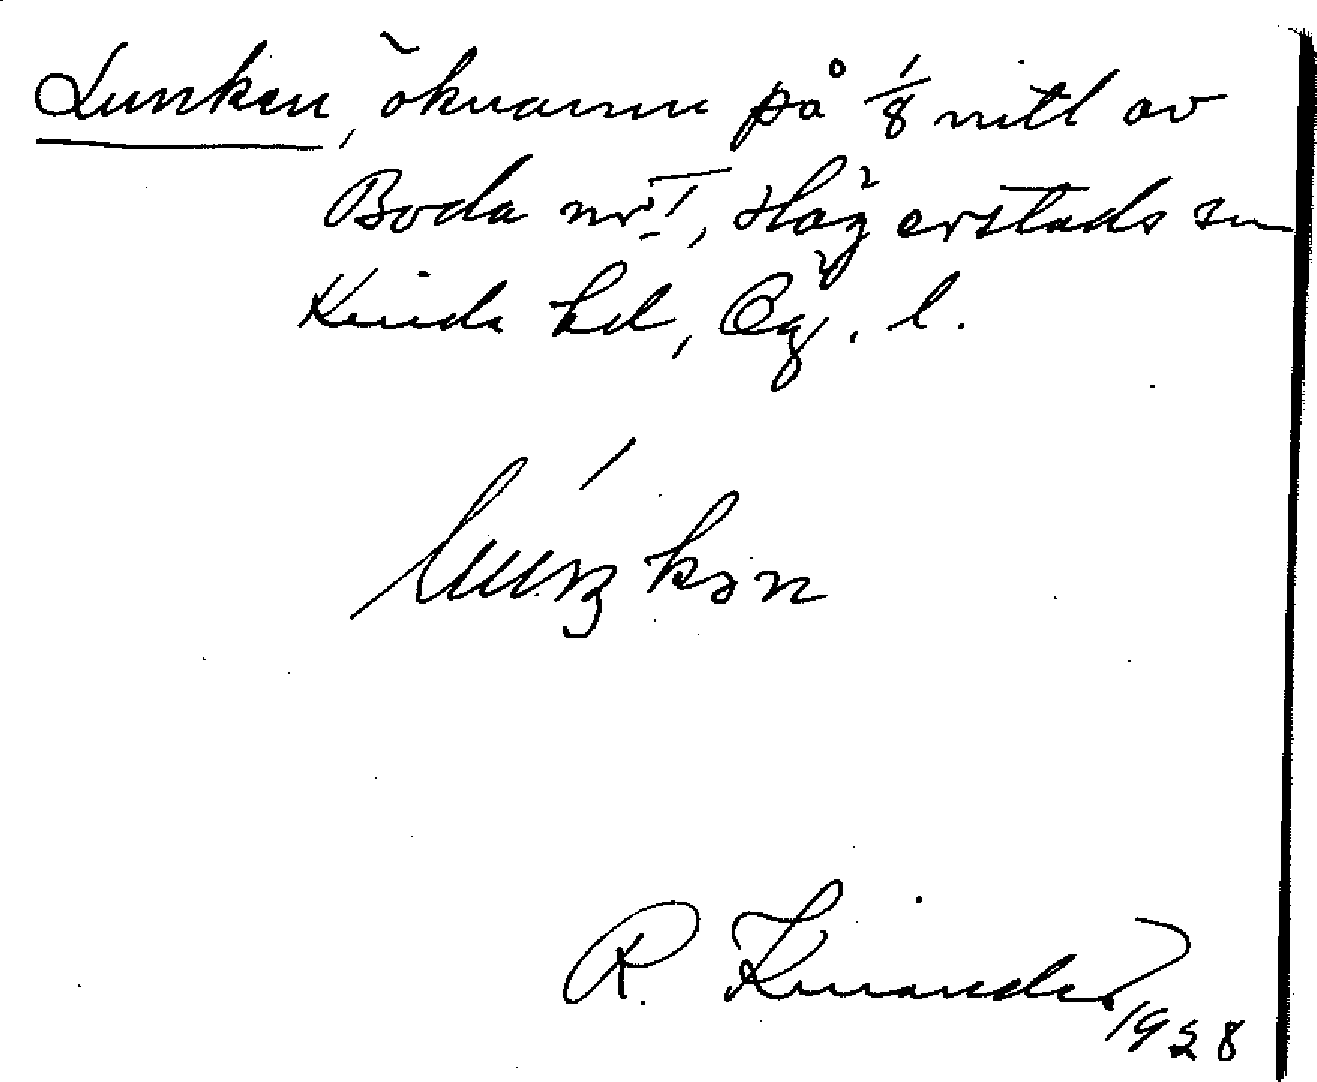 Lunken, öknamn på 1/8 mtl av
Boda nr 1, Hägerstads sn
Kinda hd, Ög. l.
R. Kinander
1928